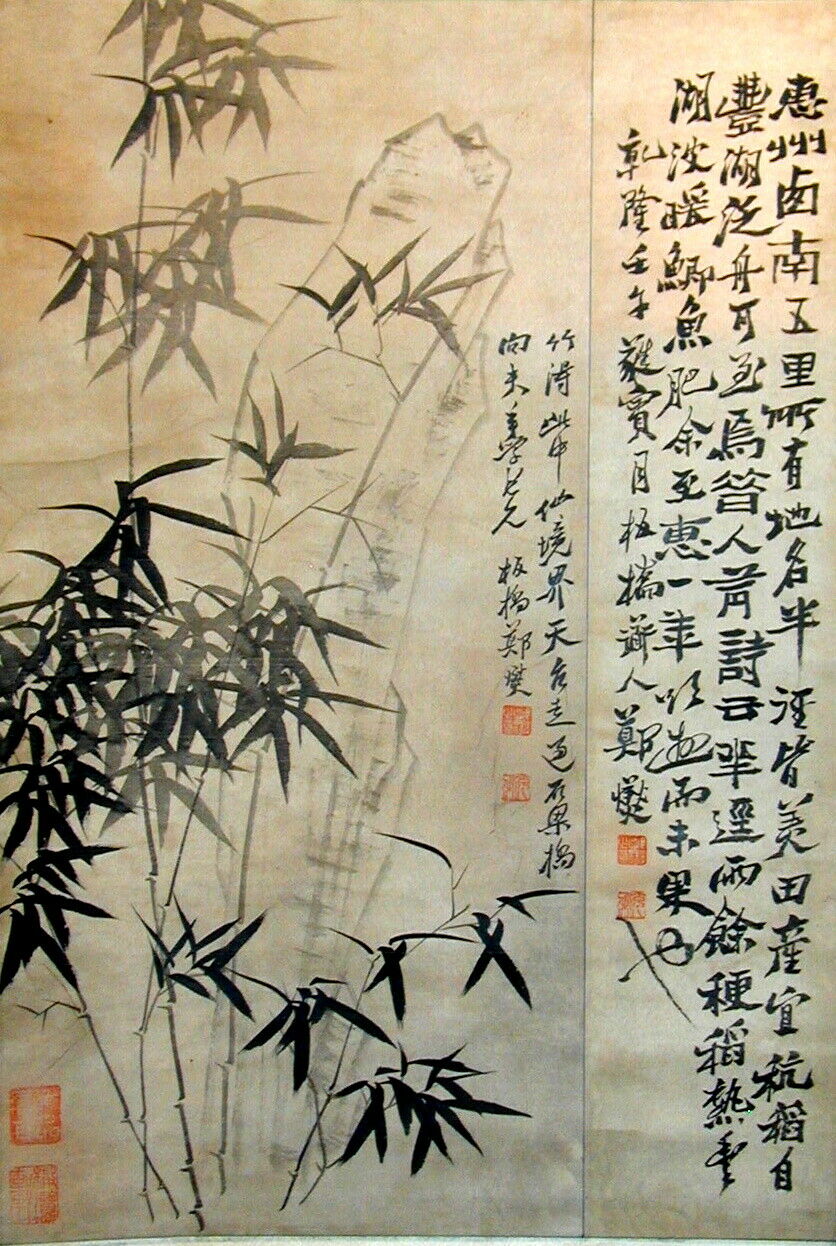 惠州西南五里所有地名半涇皆美田產宜秔稻自
豐湖泛舟可至焉昔人有詩云半逕雨餘稉稻熟豐
湖波暖鯽魚肥余至惠一年欲遊而未果也
乾隆壬午蕤賓月板橋人鄭燮
竹得此中仙境界天台走過石梁橋
向學兄 板橋鄭燮